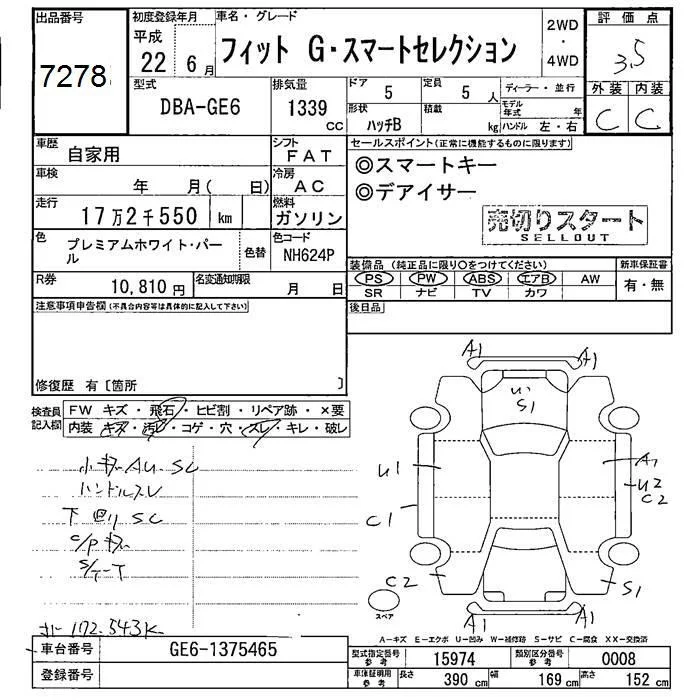 出品番号
7278
初度登録年月
平成
22 6月
車名・グレード
フィット G・スマートセレクション
2WD
・
4WD
評価点
3.5
外装 内装
C C
型式
DBA-GE6
排気量
1339
CC
ドア
5
定員
5 人
形状
ハッチB
積載
kg
ディーラー・並行
モデル年式 年
ハンドル 左・右
車歴
自家用
シフト
FAT
車検
年 月( 日)
冷房
AC
走行
17万2千550 km
燃料
ガソリン
色
プレミアムホワイト・パール
色替
色コード
NH624P
R券
10,810円
名変通知期限
月 日
セールスポイント(正常に機能するものに限ります)
◎スマートキー
◎デアイサー
売切りスタート
SELLOUT
装備品(純正品に限り○をつけてください)
PS PW ABS エアB AW
SR ナビ TV カワ
新車保証書
有・無
後日品
注意事項申告欄(不具合内容等は具体的に記入して下さい)
修復歴 有〔箇所 〕
検査員
記入欄
FW キズ・飛石・ヒビ割・リペア跡・×要
内装 キズ・汚レ・コゲ・穴・スレ・キレ・破レ
小キズAU SC
ハンドルスレ
下回り SC
C/Pキズ
172.543K
A1 A1
U1
S1
U1
A1
U2
C2
C1
C2
S1
A1 A1
スペア
A-キズ E-エクボ U-凹み W-補修跡 S-サビ C-腐食 XX-交換済
車台番号
GE6-1375465
登録番号
型式指定番号
参考
15974
類別区分番号
参考
0008
車体証明用
参考
長さ 390 cm 幅 169 cm 高さ 152 cm